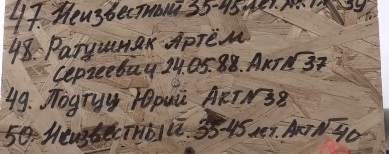 47. Неизвестный 35-45 лет. Акт № 39
48. Ратушняк Артём
Сергеевич 24.05.88. Акт № 37
49. Подтуц Юрий Акт № 38
50. Неизвестный. 35-45 лет. Акт № 40